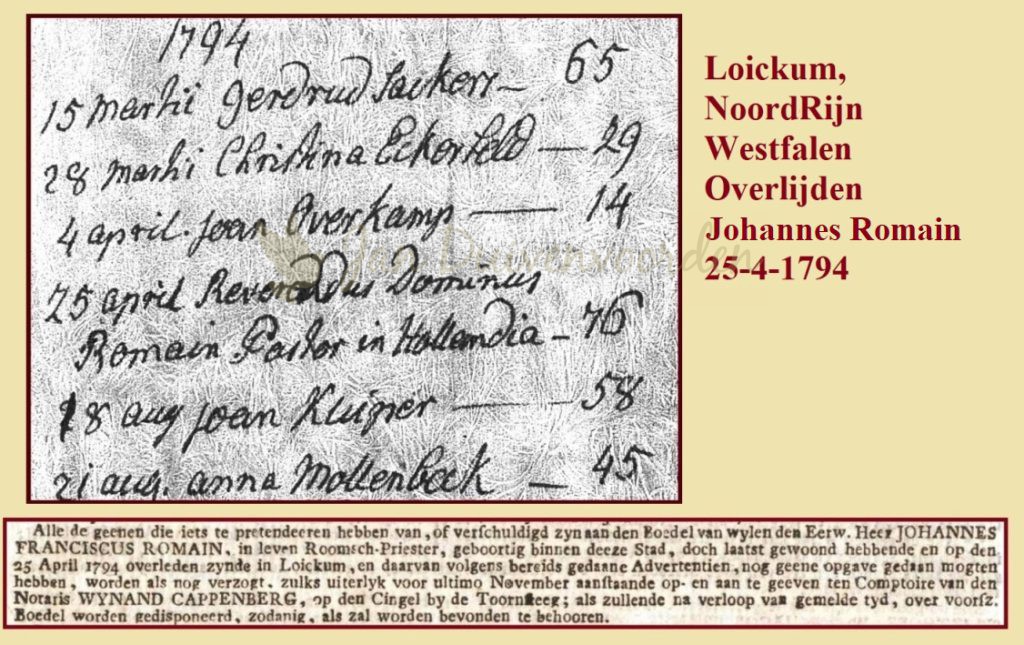 1794
15 martii Gerdrud Sackers — 65
28 martii Christina Eckerfeld — 29
4 april. Joan Overkamp — 14
25 april Reverendus Dominus
Romain Pastor in Hollandia — 76
18 aug Joan Kluper — 58
21 aug. anna Mollenbeck — 45
Loickum,
NoordRijn
Westfalen
Overlijden
Johannes Romain
25-4-1794
Jan Duivenvoorden
Alle de geenen die iets te pretendeeren hebben van, of verschuldigd zyn aan den Boedel van wylen den Eerw. Heer JOHANNES
FRANCISCUS ROMAIN, in leven Roomsch-Priester, geboortig binnen deeze Stad, doch laatst gewoond hebbende en op den
25 April 1794 overleden zynde in Loickum, en daarvan volgens bereids gedaane Advertentien, nog geene opgave gedaan mogten
hebben, worden als nog verzogt, zulks uiterlyk voor ultimo November aanstaande op- en aan te geeven ten Comptoire van den
Notaris WYNAND CAPPENBERG, op den Cingel by de Toornsteeg; als zullende na verloop van gemelde tyd, over voorsz.
Boedel worden gedisponeerd, zodanig, als zal worden bevonden te behooren.